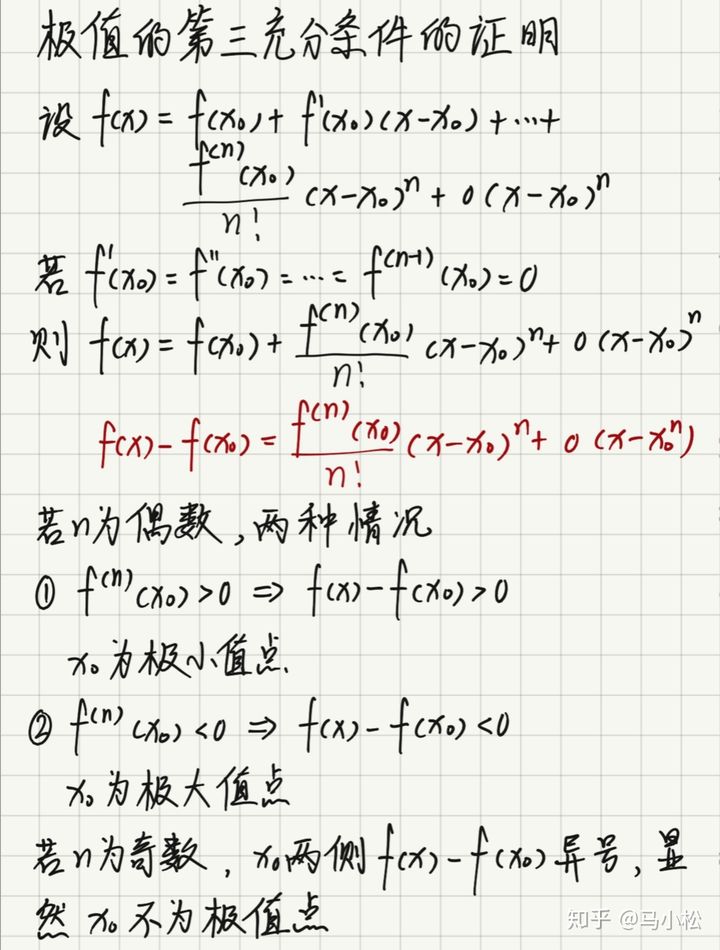 极值的第三充分条件的证明
设 f(x) = f(x₀) + f'(x₀)(x-x₀) + ⋯ +
f⁽ⁿ⁾(x₀)/n! (x-x₀)ⁿ + o(x-x₀)ⁿ
若 f'(x₀) = f''(x₀) = ⋯ = f⁽ⁿ⁻¹⁾(x₀) = 0
则 f(x) = f(x₀) + f⁽ⁿ⁾(x₀)/n! (x-x₀)ⁿ + o(x-x₀)ⁿ
f(x) - f(x₀) = f⁽ⁿ⁾(x₀)/n! (x-x₀)ⁿ + o(x-x₀ⁿ)
若n为偶数,两种情况
① f⁽ⁿ⁾(x₀) > 0 ⇒ f(x) - f(x₀) > 0
x₀为极小值点.
② f⁽ⁿ⁾(x₀) < 0 ⇒ f(x) - f(x₀) < 0
x₀为极大值点
若n为奇数, x₀两侧 f(x) - f(x₀) 异号, 显
然 x₀ 不为极值点
知乎 @马小松